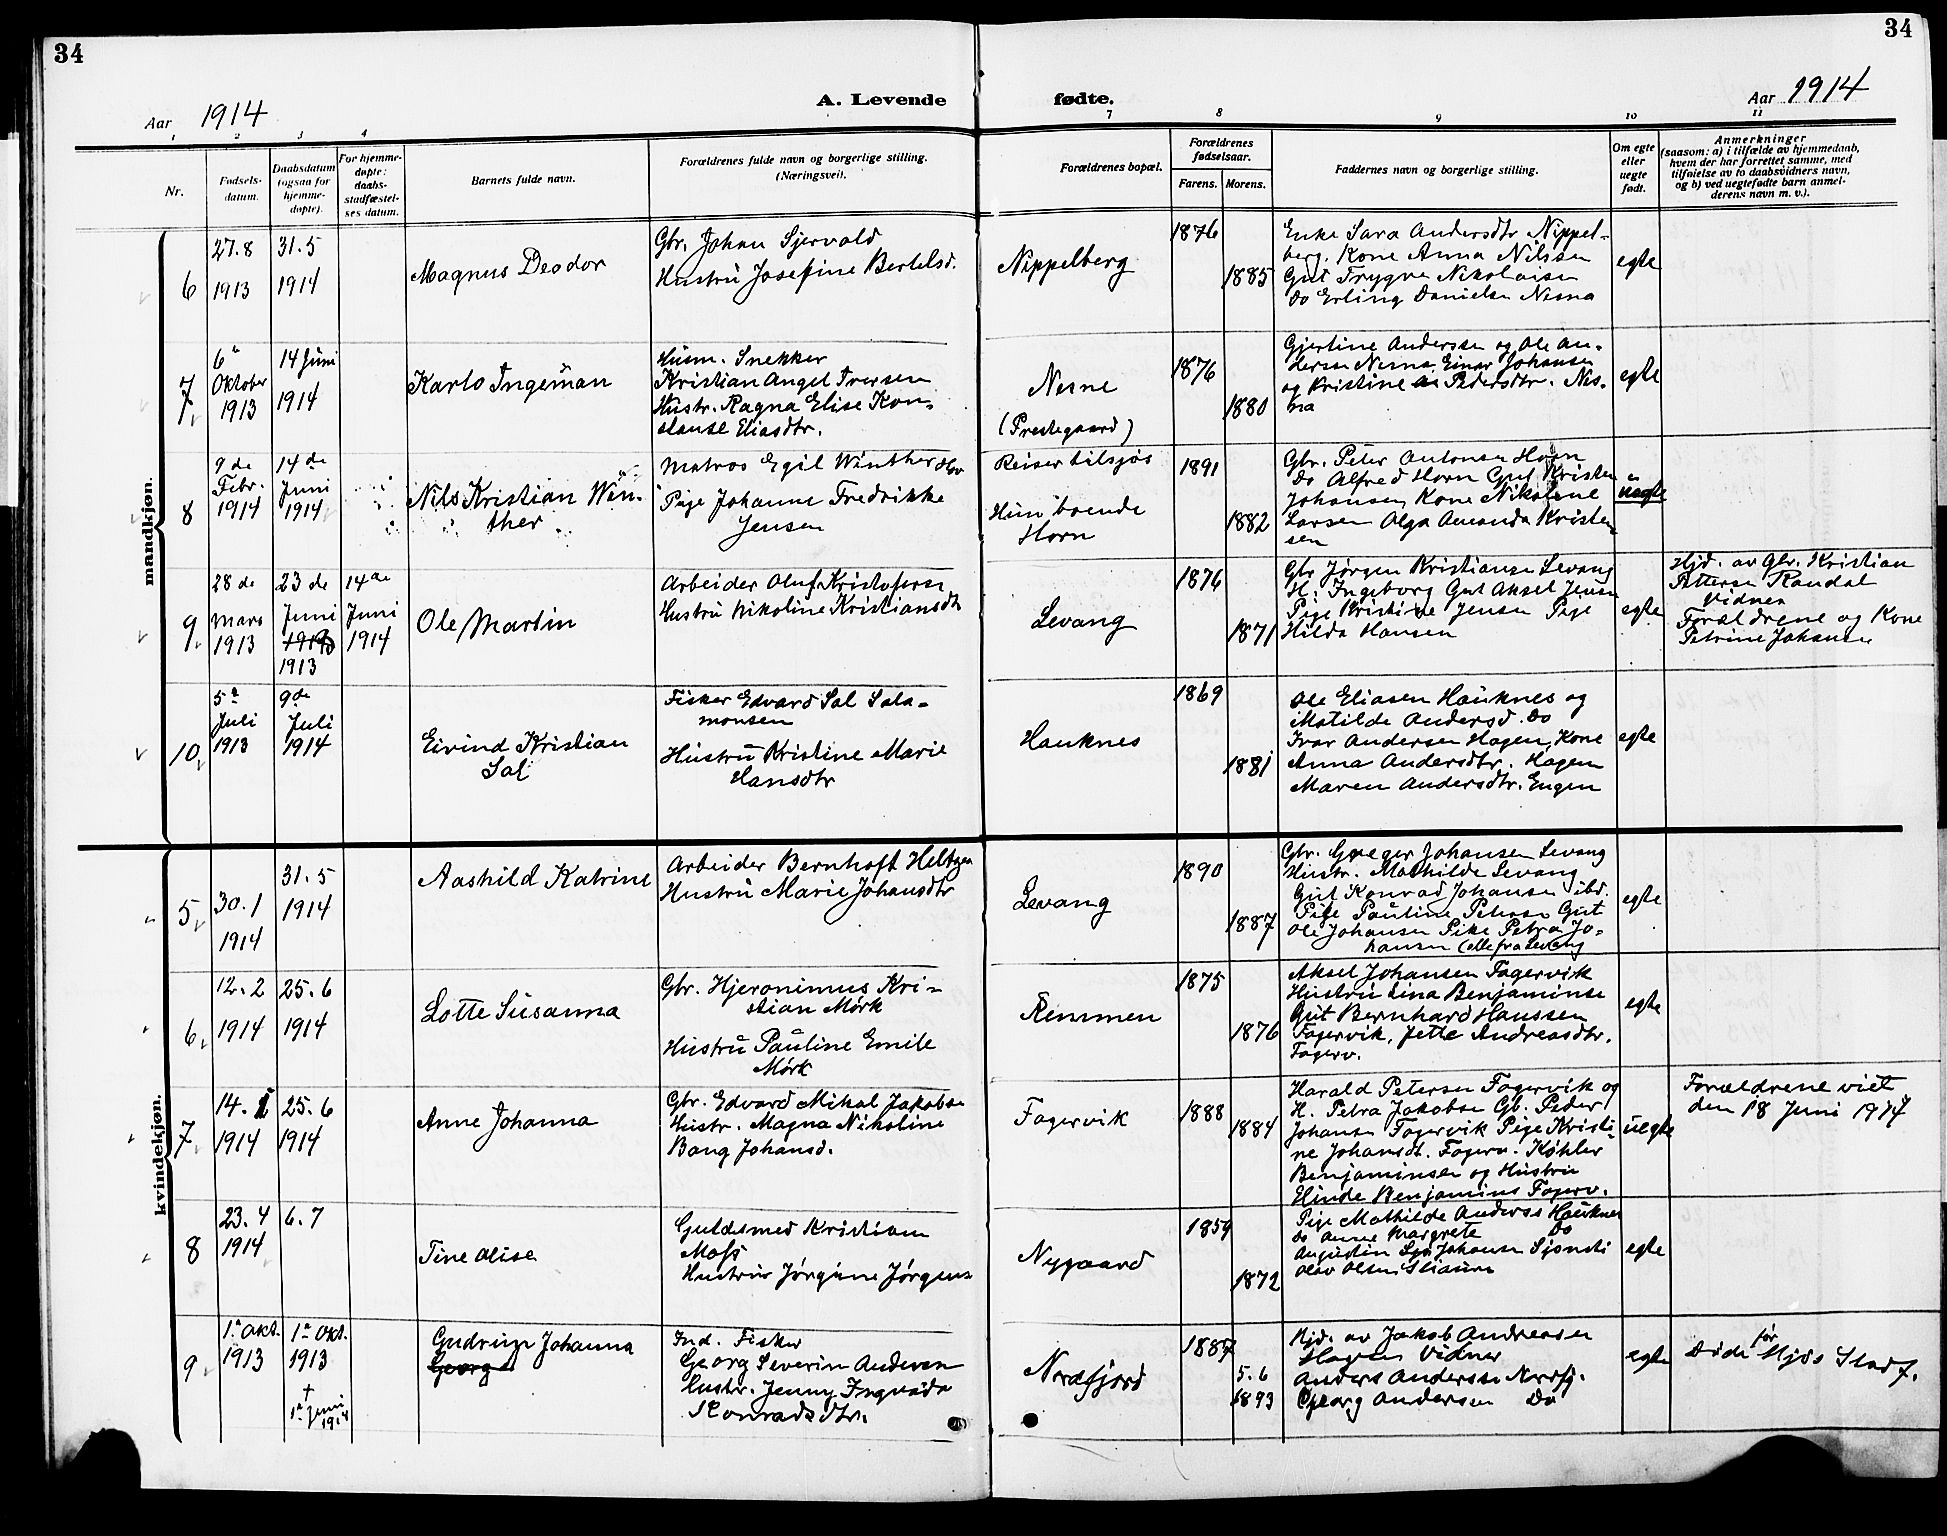 34
34
Aar 1914
A. Levende fødte.
Aar 1914
1 2 3 4
7 8 9 10 11
Nr.
Fødsels-
datum.
Daabsdatum
(ogsaa for
hjemme-
døpte).
For hjemme-
døpte:
daabs-
stadfæstel-
ses datum.
Barnets fulde navn.
Forældrenes fulde navn og borgerlige stilling.
(Næringsvei).
Forældrenes bopæl.
Forældrenes
fødselsaar.
Farens. Morens.
Faddernes navn og borgerlige stilling.
Om egte
eller
uegte
født.
Anmerkninger
(saasom: a) i tilfælde av hjemmedaab,
hvem der har forrettet samme, med
tilføielse av to daabsvidners navn,
og b) ved uegtefødte barn anmel-
derens navn m. v.).
mandkjøn.
6
27.8
1913
31.5
1914
Magnus Deodor
Gbr. Johan Sjervold
Hustru Josefine Bertelsd.
Nippelberg
1876
1885
Enke Sara Andersdtr Nippel-
berg. Kone Anna Nilssen
Gut Trygve Nikolaisen
Do Erling Danielsen Nesna
egte
7
6te
Oktober
1913
14 Juni
1914
Karlo Ingeman
Husm. Snekker
Kristian Angel Iversen
Hustr. Ragna Elise Kon-
stanse Eliasdtr.
Nesne
(Prestegaard)
1876
1880
Gjertine Anderssen og Ole An-
dersen Nesna, Einar Johansen
og Kristine Pedersdtr. Nes-
na
egte
8
9de
Febr.
1914
14de
Juni
1914
Nils Kristian Win-
ther
Matros Egil Winther
Pige Johanne Fredrikke
Jensen
Reiser tilsjøs
Hun boende
Horn
1891
1882
Gbr. Peter Antonsen Horn
Do Alfred Horn Gut Kristen
Johansen Kone Nikoline
Larsen Olga Amanda Kristen-
sen
uegte
9
28de
Mars
1913
23de
Juni
1913
14de
Juni
1914
Ole Martin
Arbeider Oluf Kristofersen
Hustru Nikoline Kristiansdtr
Levang
1876
1871
Gbr Jørgen Kristiansen Levang
H. Ingeborg Gut Aksel Jensen
Pige Kristine Jensen Pige
Hilda Hansen
egte
Hjd. av Gbr. Kristian
Pettersen Randal
Vidner
Forældrene og Kone
Petrine Johansen
10
5te
Juli
1913
9de
Juli
1914
Eivind Kristian
Sal
Fisker Edvard Sal Sala-
monsen
Hustru Kristine Marie
Hansdtr
Hauknes
1869
1881
Ole Eliasen Hauknes og
Matilde Andersd. Do
Ivar Andersen Hagen, Kone
Anna Andersdtr. Hagen
Maren Andersdtr. Engen
egte
kvindekjøn.
5
30.1
1914
31.5
1914
Aashild Katrine
Arbeider Bernhoft Heltzen
Hustru Marie Johansdtr
Levang
1890
1887
Gbr. Greger Johansen Levang
Hustr. Mathilde Levang
Gut Konrad Johansen ibd.
Pike Pauline Peterson Gut
Ole Johansen Pike Petra Jo-
hansen (alle fra Levang
egte
6
12.2
1914
25.6
1914
Lotte Susanna
Gbr. Hjeronimus Kri-
stian Mørk
Hustru Pauline Emile
Mørk
Remmen
1875
1876
Aksel Johansen Fagervik
Hustru Lina Benjaminsen
Gut Bernhard Hanssen
Fagervik, Jette Andreasdtr.
Fagerv.
egte
7
14.
1914
25.6
1914
Anne Johanna
Gbr. Edvard Mikal Jakobsen
Hustr. Magna Nikoline
Bang Johansd.
Fagervik
1888
1884
Harald Petersen Fagervik og
H. Petra Jakobsen Gb. Peder
Johansen Fagervik Pige Kristi-
ne Johansdt. Fagerv. Køhler
Benjaminsen og Hustru
Elinde Benjamins Fagerv.
uegte
Forældrene viet
den 18 Juni 1914
8
23.4
1914
6.7
Tine Alise
Guldsmed Kristian
Moss
Hustru Jørgine Jørgens
Nygaard
1859
1872
Pige Mathilde Anderss Hauknes
Do Anne Margrete Do
Augustin Johansen Sjonsti
Olav Olsen
egte
9
1ste Okt.
1913
1ste Okt.
1913
†
1ste Juni
1914
Gudrun Johanna
Georg
Ind. Fisker
Georg Severin Andersen
Hustr. Jenny Ingvalda
Konradsdtr.
Nordfjord
1887
5.6
1893
Hjd. av Jakob Andreasen
Hagen Vidner
Anders Anderssen Nordfj.
Georg Andersen Do
egte
Døde før Hjds Stadf.